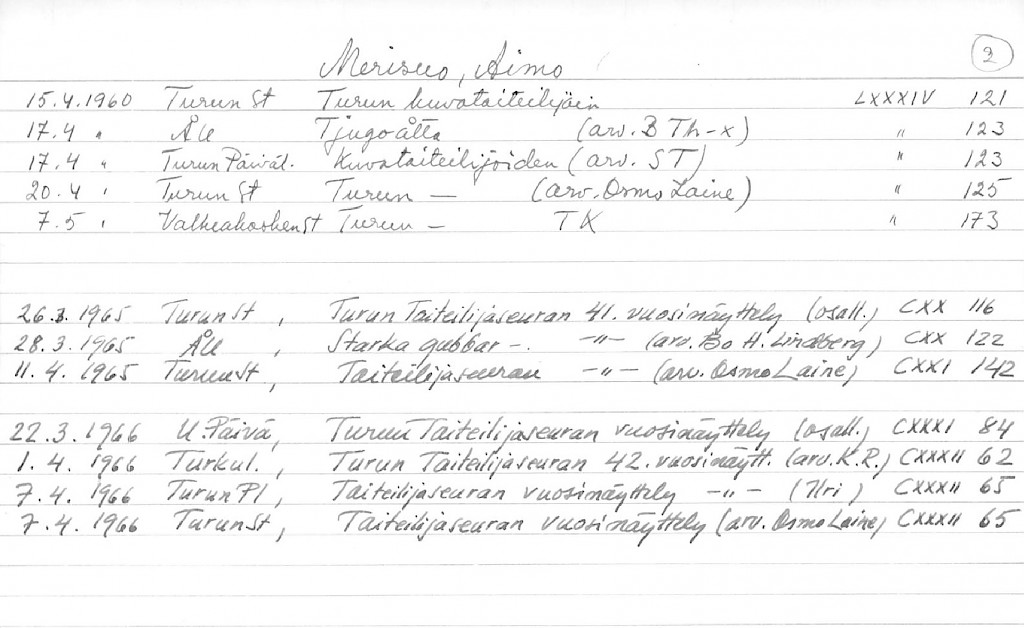 Merisuo, Aimo
3
15.4.1960 Turun St Turun kuvataiteilijain LXXXIV 121
17.4 " ÅU Tjugoåtta (arv. B Th-x) " 123
17.4 " Turun Päiväl. Kuvataiteilijoiden (arv. ST) " 123
20.4 " Turun St Turun — (arv. Osmo Laine) " 125
7.5 " Valkeakosken st Turun — TK " 173
26.3.1965 Turun St, Turun Taiteilijaseuran 41. vuosinäyttely (osall.) CXX 116
28.3.1965 ÅU, Starka gubbar -. -"- (arv. Bo H. Lindberg) CXX 122
11.4.1965 Turun St, Taiteilijaseuran -"- (arv. Osmo Laine) CXXI 142
22.3.1966 U. Päivä, Turun Taiteilijaseuran vuosinäyttely (osall.) CXXXI 84
1.4.1966 Turkul., Turun Taiteilijaseuran 42. vuosinäytt. (arv. K.R.) CXXXII 62
7.4.1966 Turun Pl, Taiteilijaseuran vuosinäyttely -"- CXXXII 65
7.4.1966 Turun St, Taiteilijaseuran vuosinäyttely (arv. Osmo Laine) CXXXII 65